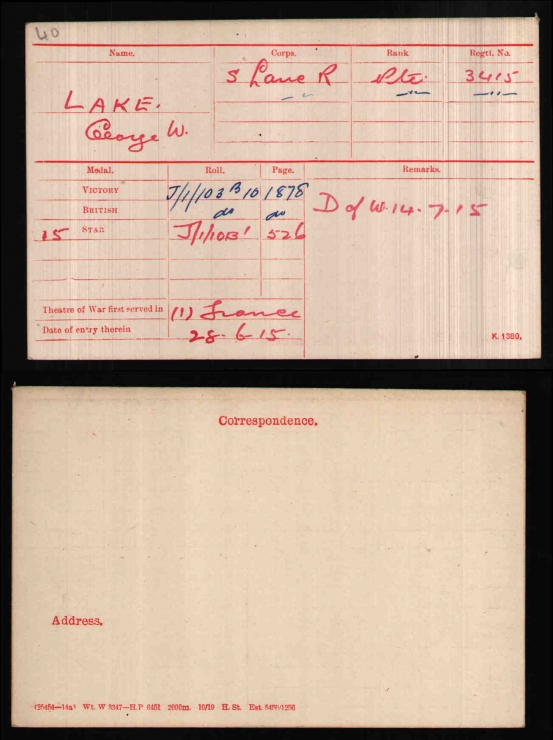 40
Name. Corps. Rank Regtl. No.
S Lanc R Pte. 3415
LAKE.
George W.
Medal. Roll. Page. Remarks.
VICTORY J/1/103 B10 1878
BRITISH do do
15 STAR J/1/10B1 526
D of W. 14. 7. 15
Theatre of War first served in (1) France
Date of entry therein 28. 6. 15.
K. 1380.
Correspondence.
Address.
Wt. W 3347—H.P 2000m. 10/19 H. St.